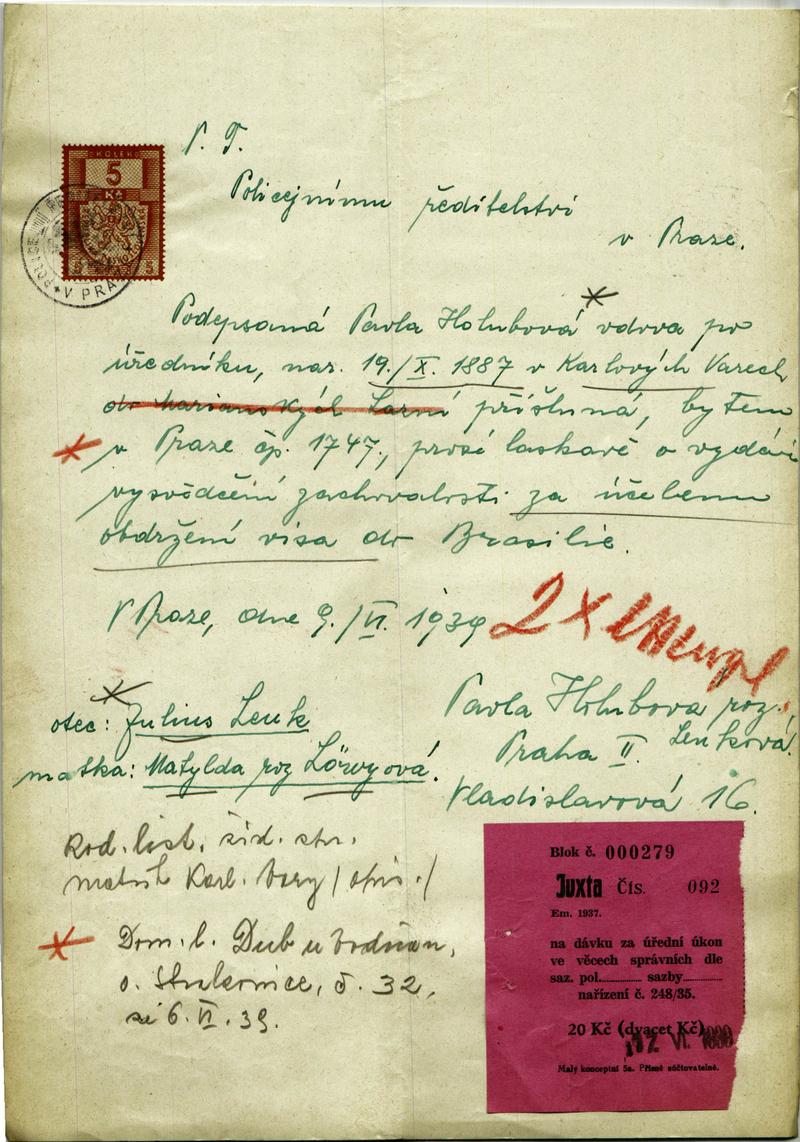 KOLEK
5
Kč
5 5
V PRA
P. T.
Policejnímu ředitelství
v Praze.
Podepsaná Pavla Holubová vdova po
úředníku, nar. 19./X. 1887 v Karlových Varech
do Marianských Lazní příslušná, bytem
v Praze čp. 1747, prosí laskavě o vydání
vysvědčení zachovalosti za účelem
obdržení visa do Brasilie.
V Praze, dne 9./VI. 1939
2 x
Pavla Holubova roz.
Lenková
Praha II.
Vladislavová 16.
otec: Julius Lenk
matka: Matylda roz Löwyová.
Rod. list. žid. ob.
matrik Karl. Vary / opis. /
Dom. l. Dub u Vodňan,
o. Strakonice, č. 32,
ze 6. VI. 39.
Blok č. 000279
Juxta Čís. 092
Em. 1937.
na dávku za úřední úkon
ve věcech správních dle
saz. pol. sazby
nařízení č. 248/35.
20 Kč (dvacet Kč)
12. VI.
Malý konceptní 5a. Přísně súčtovatelné.